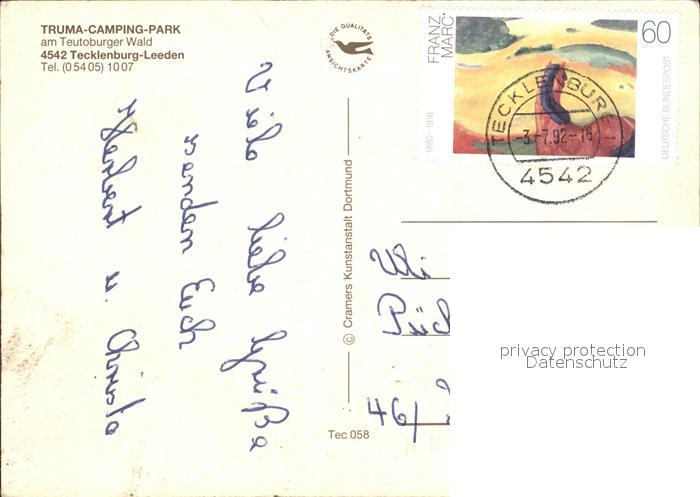 TRUMA-CAMPING-PARK
am Teutoburger Wald
4542 Tecklenburg-Leeden
Tel. (0 54 05) 10 07
DIE QUALITÄTS
ANSICHTSKARTE
FRANZ
MARC
1880-1916
60
DEUTSCHE BUNDESPOST
TECKLENBURG
-3.-7.92-16
4542
Viele liebe Grüße
senden Euch
Herbert u. Christa
© Cramers Kunstanstalt Dortmund
Tec 058
Uli
Püc
46/
privacy protection
Datenschutz